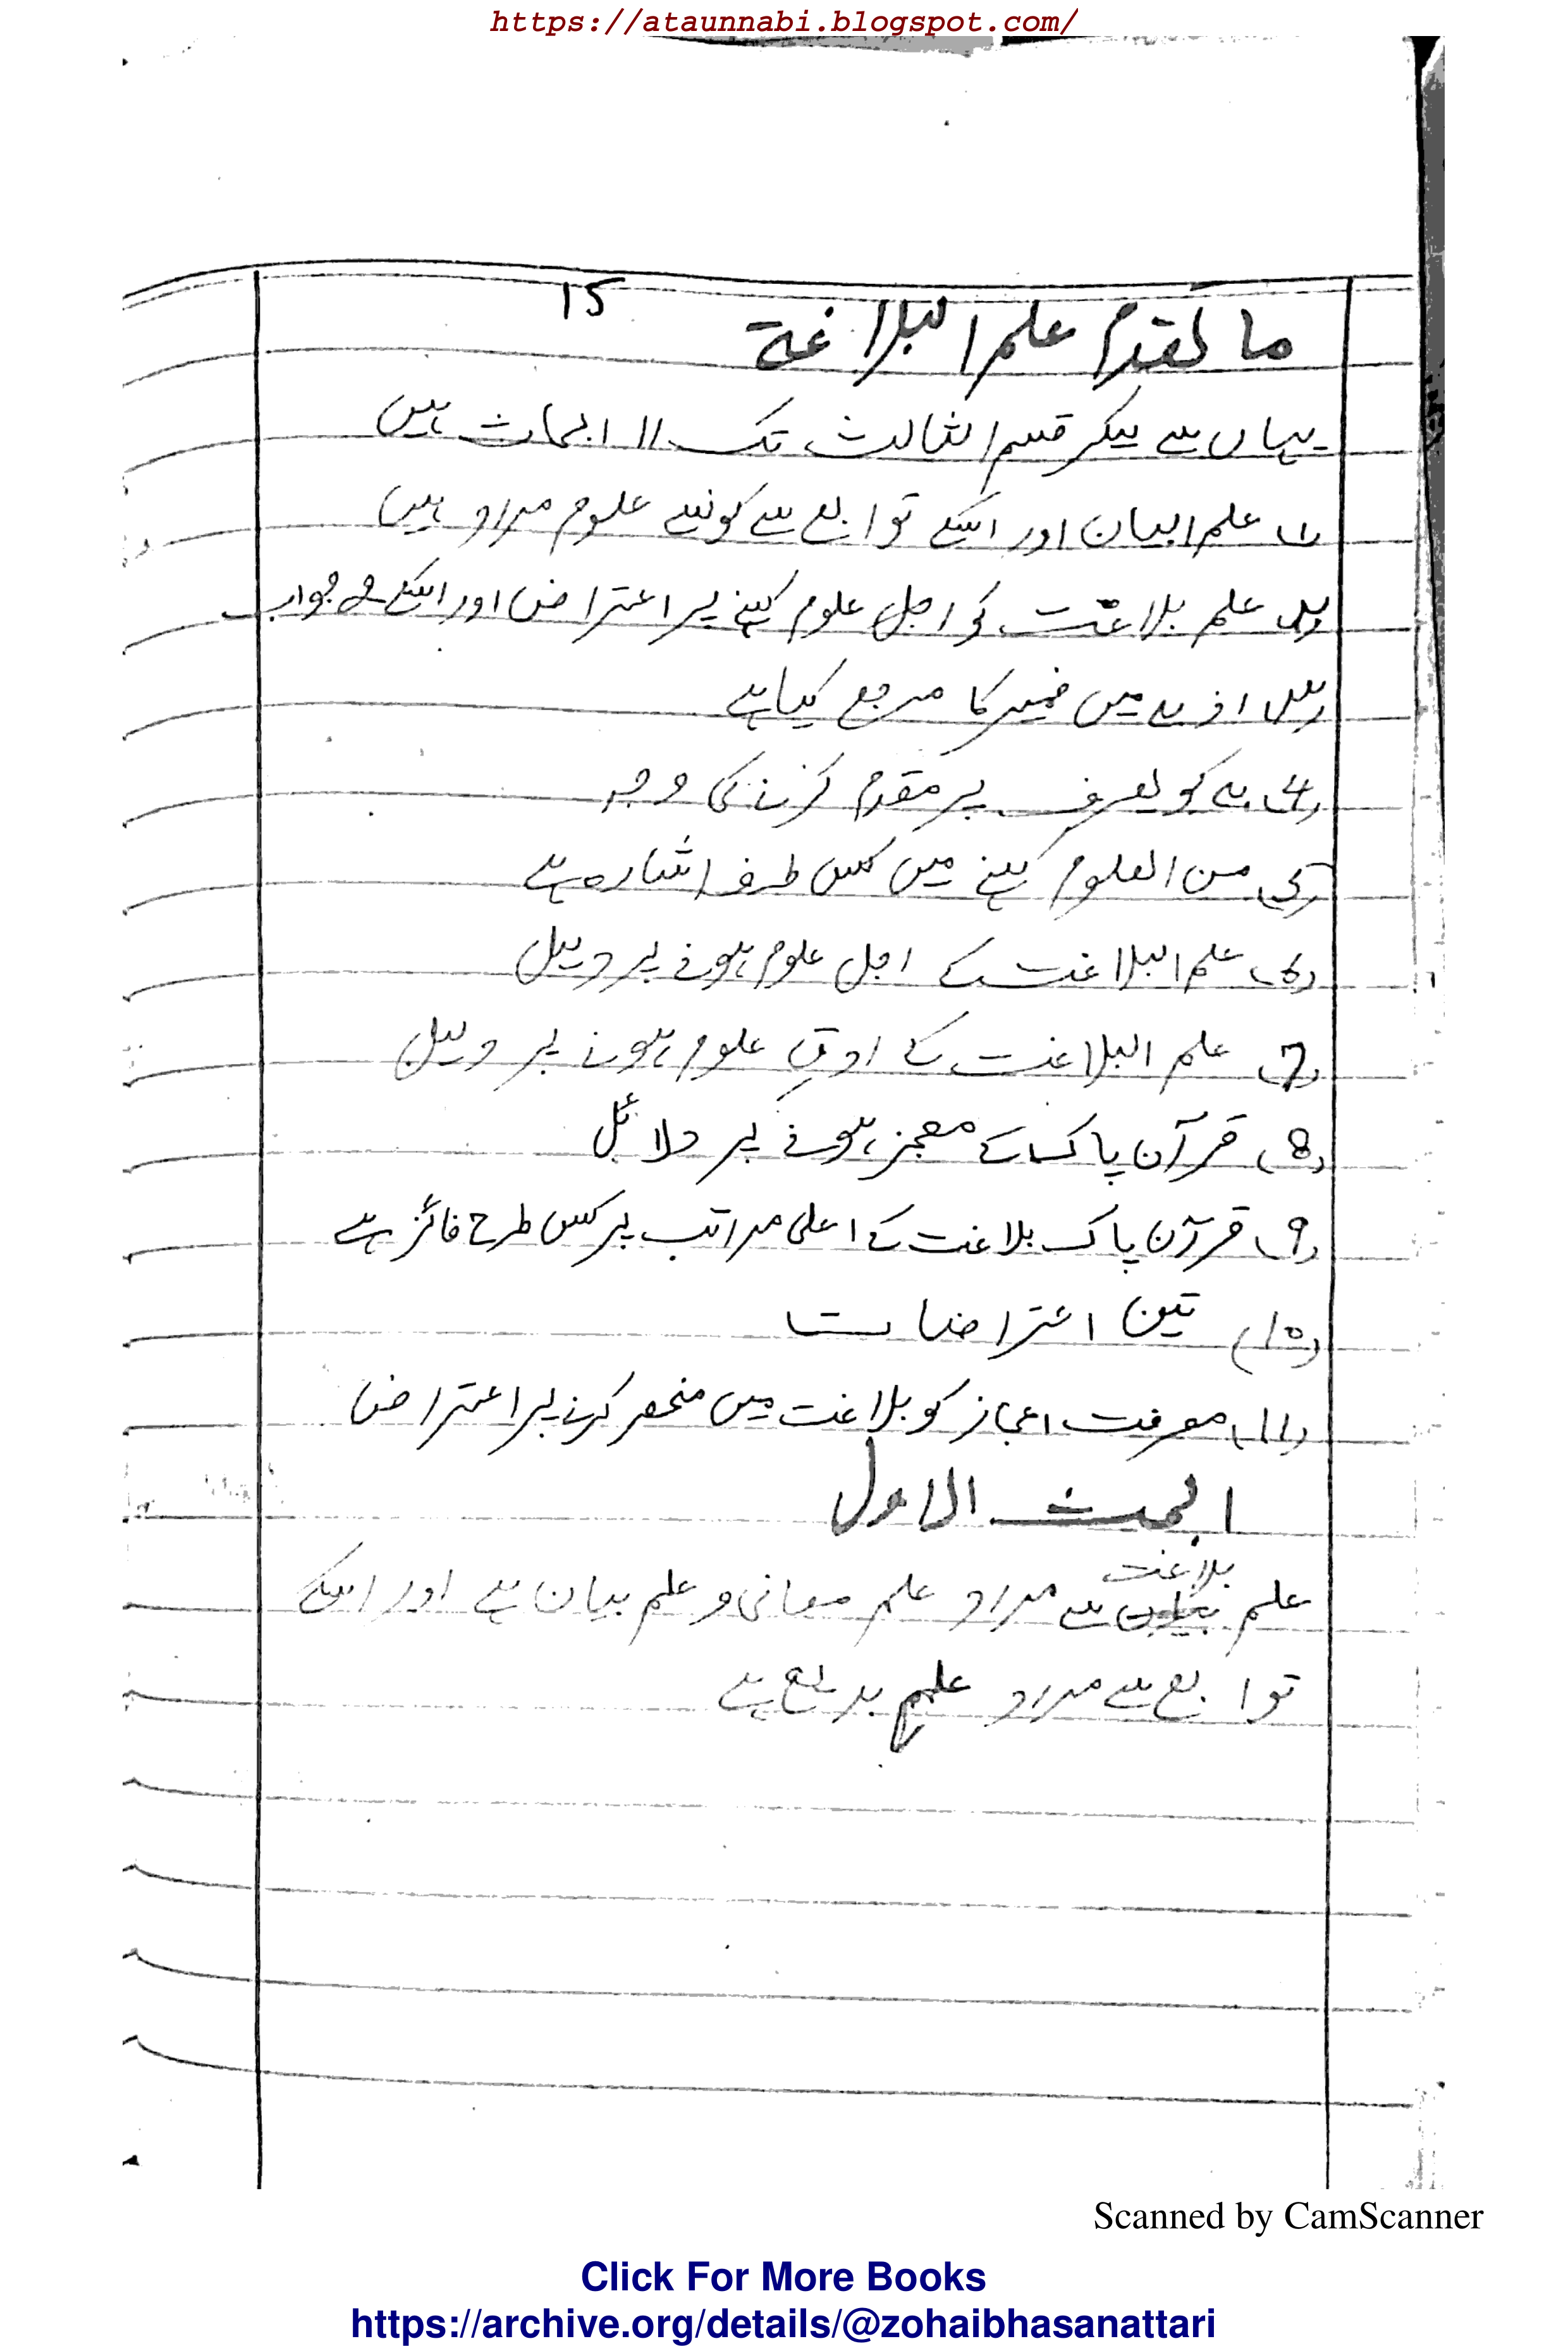 https://ataunnabi.blogspot.com/
15
ما تقدم علم البلاغة
یہاں سے لیکر قسم الثالث تک 11 ابحاث ہیں
(1) علم البیان اور اسکے توابع سے کونسے علوم مراد ہیں
(2) علم بلاغت کو اجل علوم کہنے پر اعتراض اور اسکے 2 جواب
(3) اذ بہ میں ضمیر کا مرجع کیا ہے
(4) بہ کو یعرف پر مقدم کرنے کی وجہ
(5) من العلوم کہنے میں کس طرف اشارہ ہے
(6) علم البلاغت کے اجل علوم ہونے پر دلیل
(7) علم البلاغت کے ادق علوم ہونے پر دلیل
(8) قرآن پاک کے معجز ہونے پر دلائل
(9) قرآن پاک بلاغت کے اعلی مراتب پر کس طرح فائز ہے
(10) تین اعتراضات
(11) معرفت اعجاز کو بلاغت میں منحصر کرنے پر اعتراض
البحث الاول
علم بلاغت سے مراد علم معانی و علم بیان ہے اور اسکے
توابع سے مراد علم بدیع ہے
Scanned by CamScanner
Click For More Books
https://archive.org/details/@zohaibhasanattari